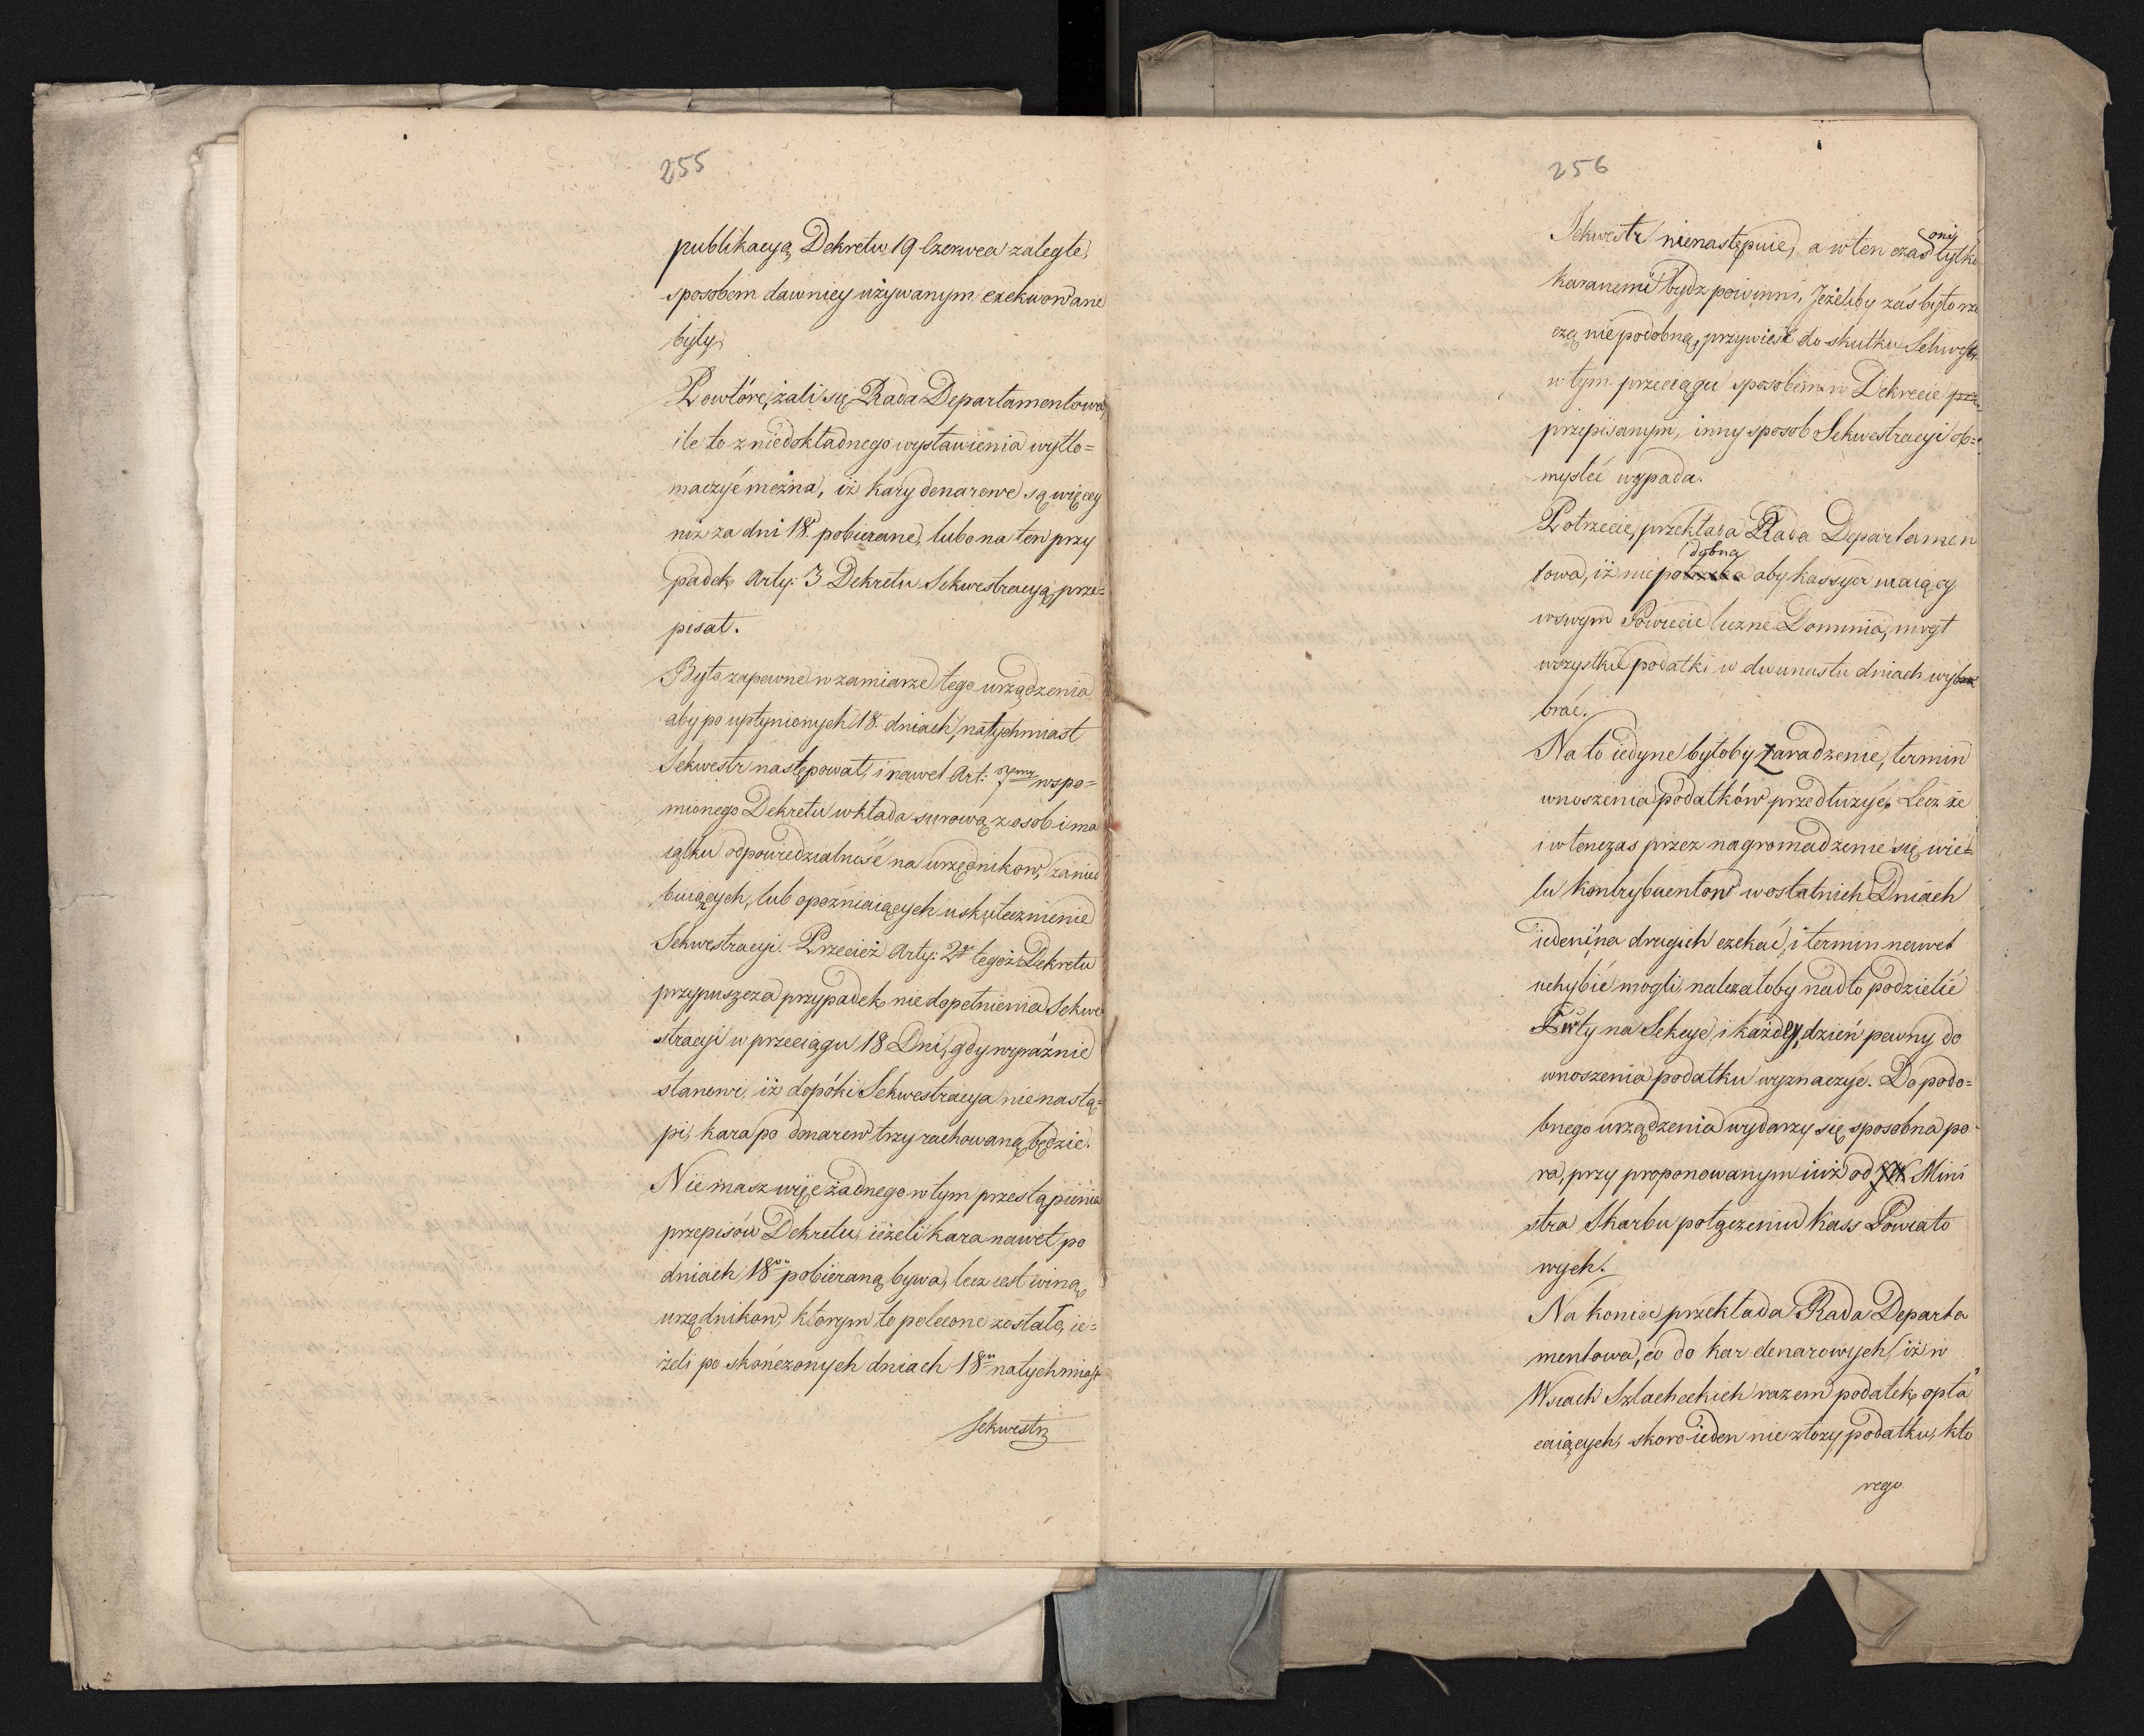 255
publikacyą Dekretu 19 Czerwca zaległe,
sposobem dawniey używanym exekwowane
były.
Powtóre, żali się Rada Departamentowa,
ile to z niedokładnego wystawienia wytło=
maczyć można, iż kary denarowe są więcey
niż za dni 18. pobierane, lubo na ten przy
padek Arty: 3 Dekretu Sekwestracyą prze=
pisał.
Było zapewne w zamiarze tego urządzenia
aby po upłynionych 18. dniach, natychmiast
Sekwestr następował, i nawet Art: 7my wspo=
mionego Dekretu wkłada surową z osob i ma
iątku odpowiedzialność na urzędnikow, zanied
buiących, lub opozniaiących uskutecznienie
Sekwestracyi. Przecież Arty: 2gi tegoż Dekretu
przypuszcza przypadek niedopełnienia Sekwe
stracyi w przeciągu 18 Dni, gdy wyraźnie
stanowi, iż dopóki Sekwestracya nie nastą=
pi, kara po denarow trzy rachowaną będzie.
Nie masz więc żadnego w tym przestąpienia
przepisów Dekretu, ieżeli kara nawet po
dniach 18tu pobieraną bywa, lecz iest winą
urzędnikow, ktorym to polecone zostało, ie=
żeli po skończonych dniach 18tu natychmiast
Sekwestr
256
Sekwestr nienastępuie, a w ten czas oni tylko
karanemi bydz powinni, Jeżeliby zaś było rze
czą nie podobną, przywieść do skutku Sekwestr
w tym przeciągu sposobem w Dekrecie prze
przepisanym, inny sposob Sekwestracyi ob=
mysleć wypada.
Potrzecie, przekłada Rada Departamen
dobna
towa, iż niepotrzeba aby kassyer maiący
w swym Powiecie liczne Dominia, mogł
wszystkie podatki w dwunastu dniach wy
brać.
Na to iedyne byłoby zaradzenie, termin
wnoszenia podatków przedłużyć. Lecz że
i w tenczas przez nagromadzenie się wie=
lu kontrybuentow w ostatnich Dniach
iedeni na drugich czekać, i termin nawet
uchybić mogli, należałoby nadto podzielić
Pwty na Sekcye, i każdey, dzień pewny do
wnoszenia podatku wyznaczyć. Do podo=
bnego urządzenia wydarzy się sposobna po
ra, przy proponowanym iuż od JW Mini
stra Skarbu połączeniu Kass Powiato
wych.
Na koniec przekłada Rada Departa
mentowa, co do kar denarowych, iż w
Wsiach Szlacheckich razem podatek opła
caiących, skoro ieden nie złoży podatku, kto
rego